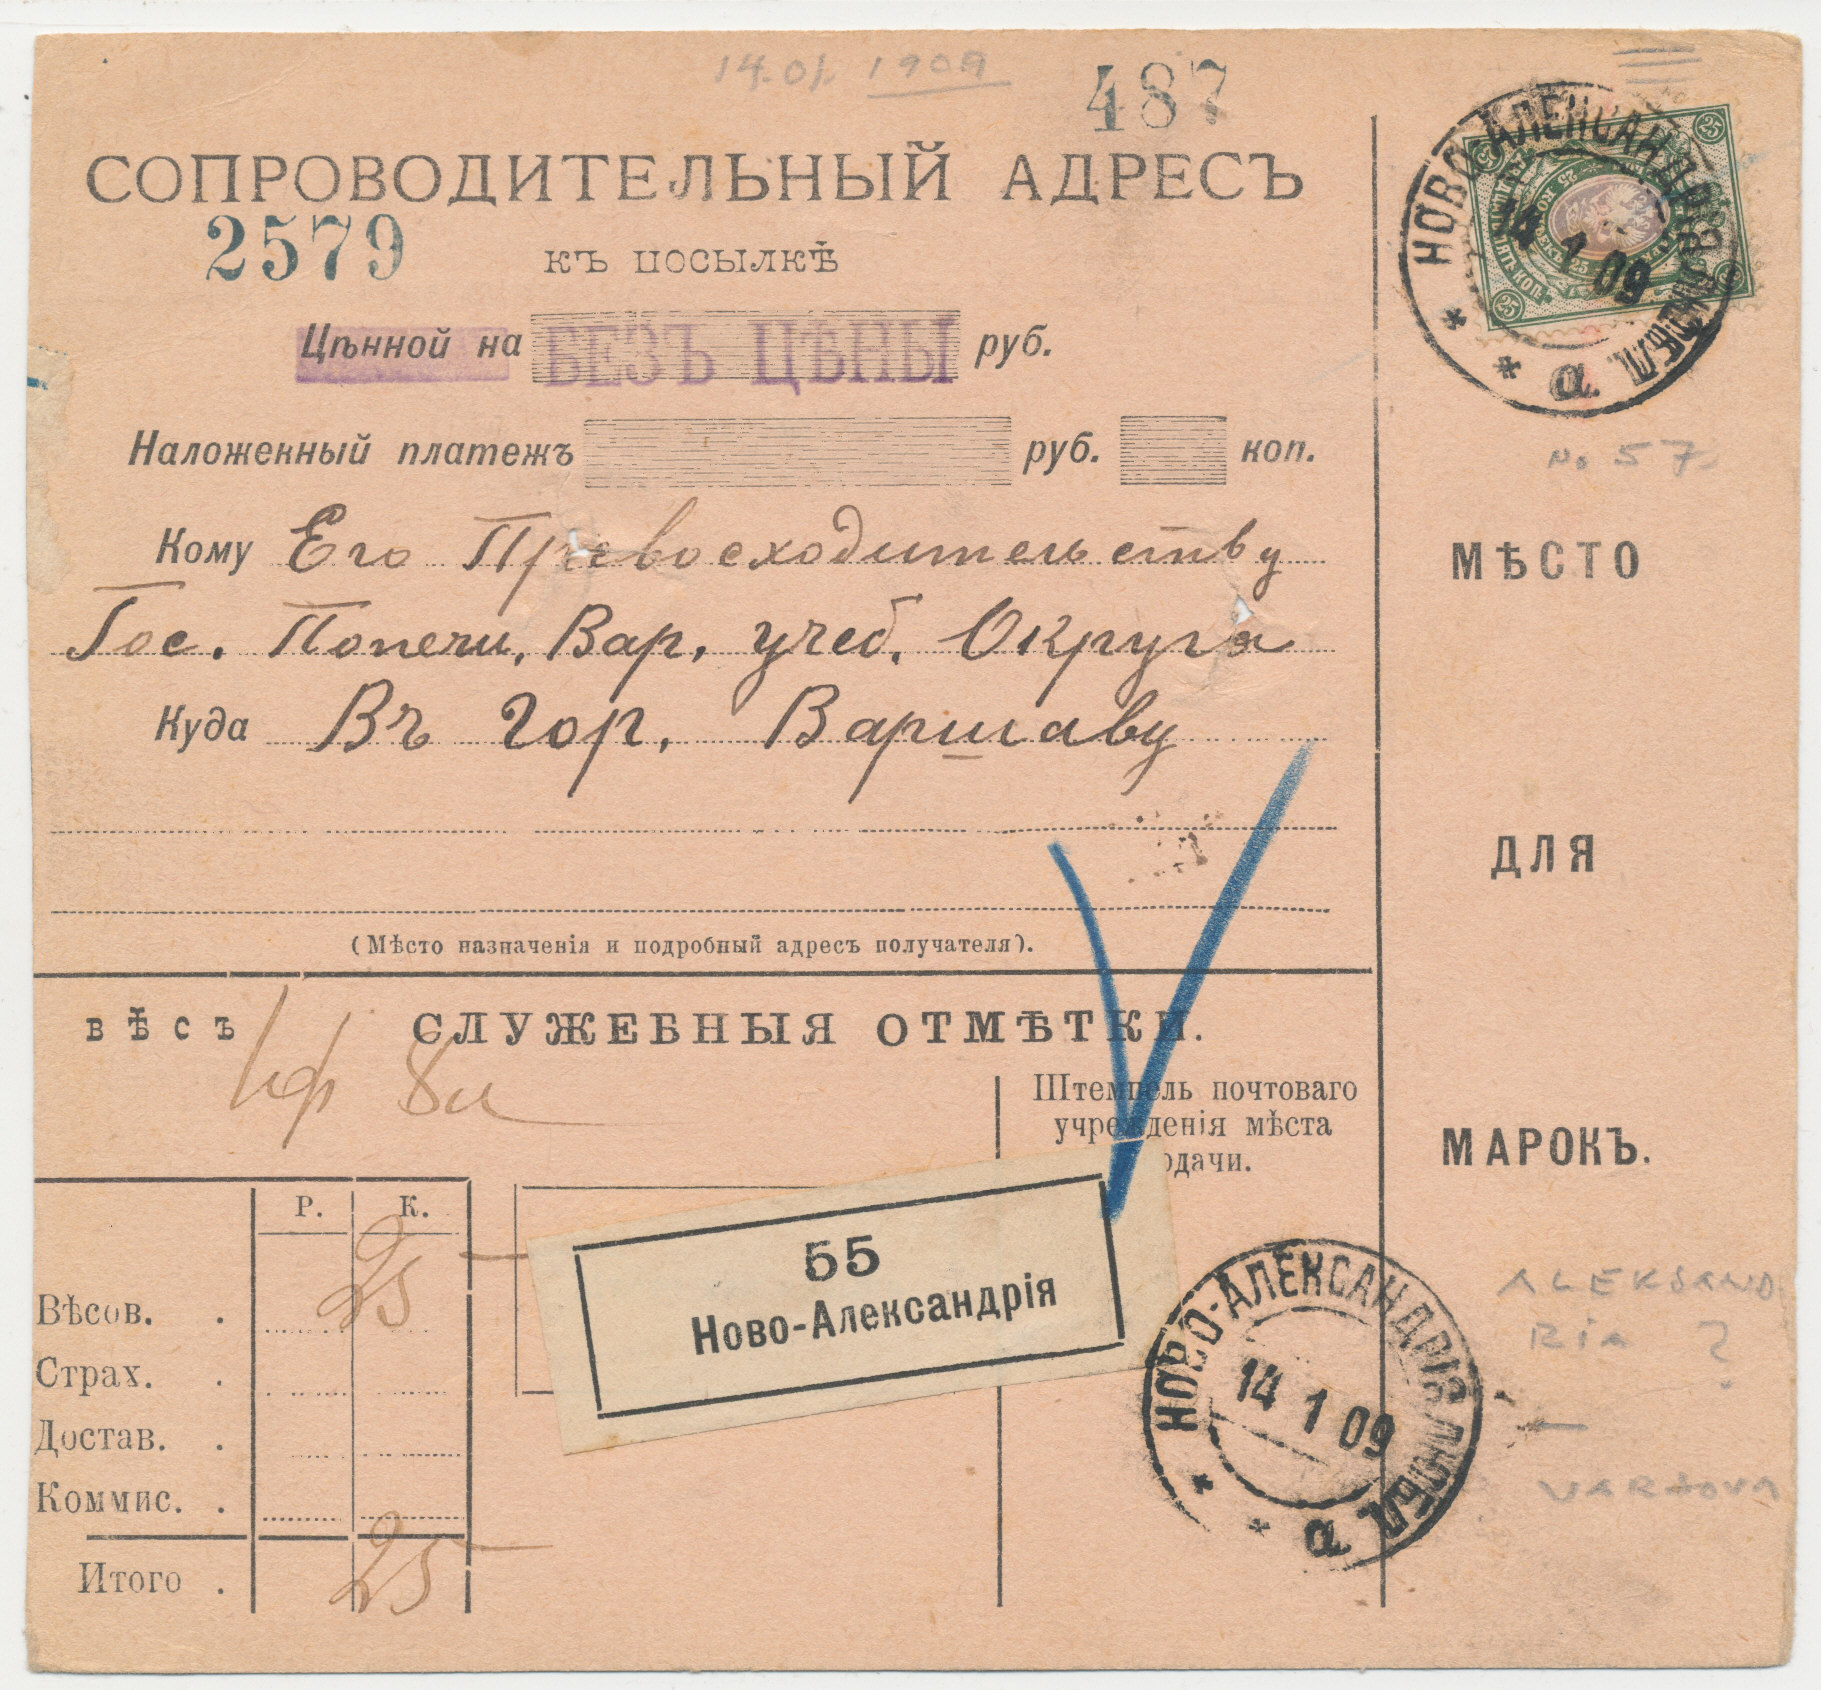 14.01. 1909
487
СОПРОВОДИТЕЛЬНЫЙ АДРЕСЪ
2579
КЪ ПОСЫЛКѢ
Цѣнной на БЕЗЪ ЦѢНЫ руб.
Наложенный платежъ руб. коп.
Кому Его Превосходительству
Гос. Попечи. Вар. учеб. Округа
Куда Въ гор. Варшаву
(Мѣсто назначенія и подробный адресъ получателя).
ВѢСЪ
1 ф 8 л
СЛУЖЕБНЫЯ ОТМѢТКИ.
Штемпель почтоваго
учрежденія мѣста
одачи.
Р. К.
Вѣсов. . 25
Страх. .
Достав. .
Коммис. .
Итого . 25
55
Ново-Александрія
НОВО-АЛЕКСАНДРІЯ ЛЮБЛ.
14 1 09
а
25
НОВО-АЛЕКСАНДРІЯ ЛЮБЛ.
14 1 09
а
No 57
МѢСТО
ДЛЯ
МАРОКЪ.
ALEKSAND
RIA ?
VARSOVA